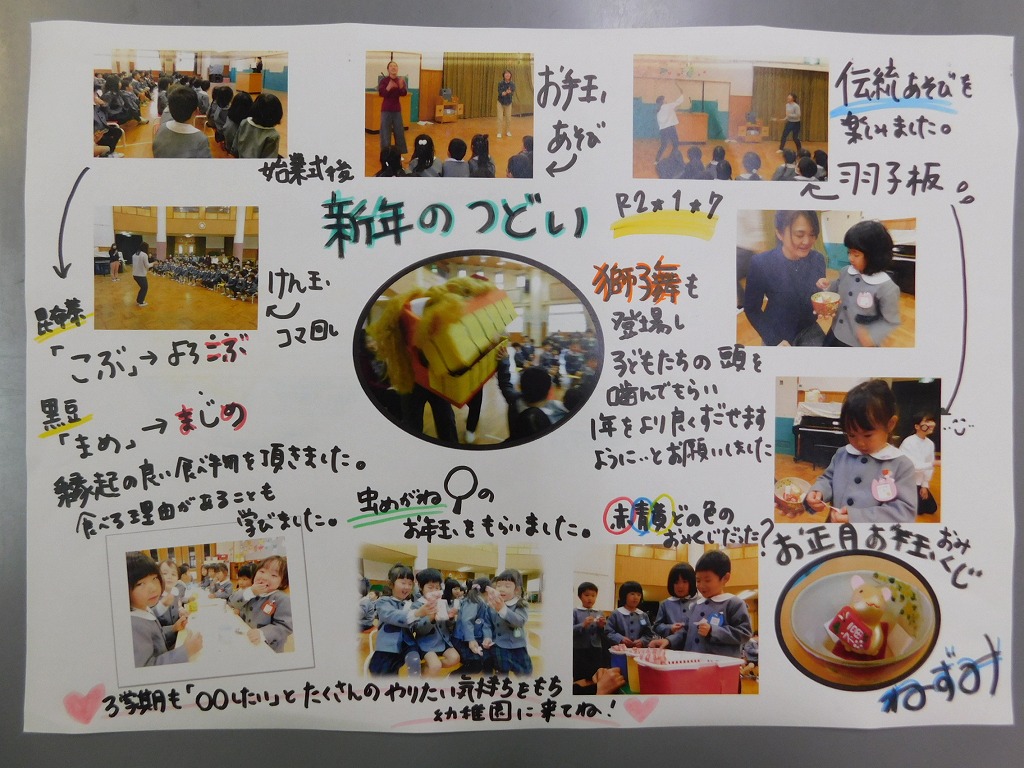 始業式後
お手玉
あそび
伝統あそびを
楽しみました。
羽子板
新年のつどい
R2*1*7
けん玉
コマ回し
昆布巻
「こぶ」→よろこぶ
黒豆
「まめ」→まじめ
縁起の良い食べ物を頂きました。
食べる理由があることも
学びました。
獅子舞も
登場し
子どもたちの頭を
噛んでもらい
1年をより良くすごせます
ように…とお願いしました
虫めがねの
お年玉をもらいました。
赤青黄どの色の
おみくじだった?
お正月お年玉おみくじ
ねーずみ
3学期も「〇〇したい」とたくさんのやりたい気持ちをもち
幼稚園に来てね!